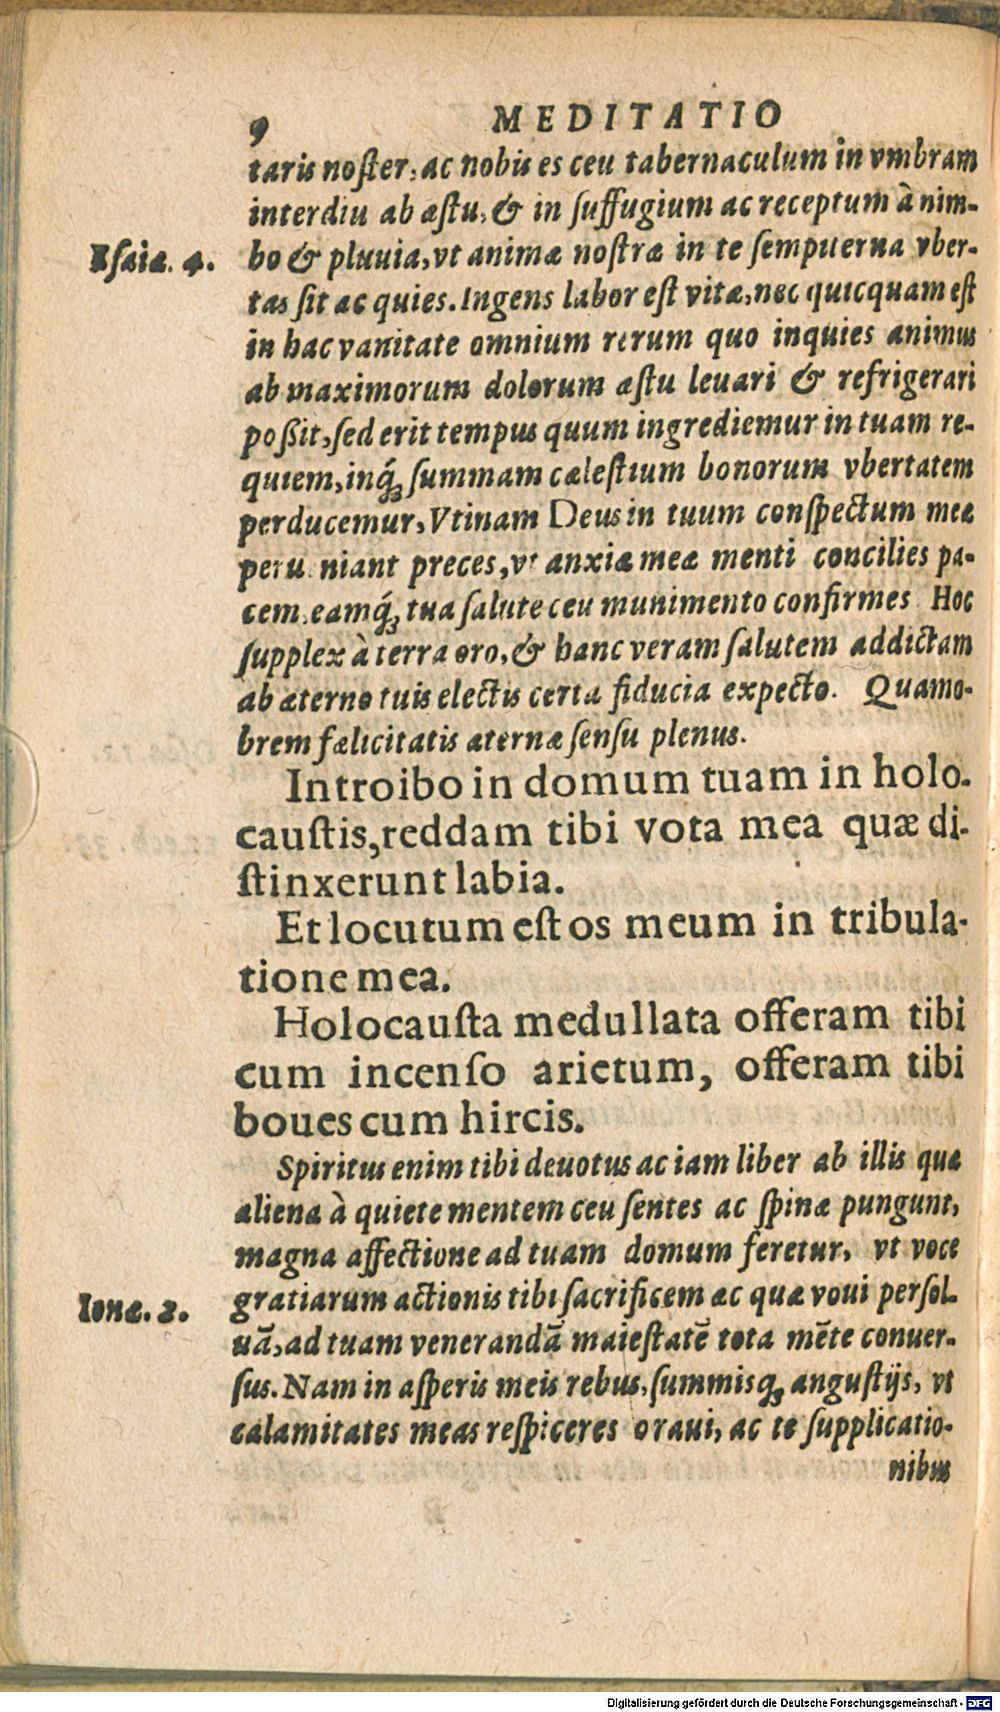 9 MEDITATIO
taris noſter, ac nobis es ceu tabernaculum in vmbram
interdiu ab æſtu, & in ſuffugium ac receptum à nim-
Eſaiæ. 4. bo & pluuia, vt animæ noſtræ in te ſempiterna vber-
tas ſit ac quies. Ingens labor eſt vitæ, nec quicquam eſt
in hac vanitate omnium rerum quo inquies animus
ab maximorum dolorum æſtu leuari & refrigerari
poßit, ſed erit tempus quum ingrediemur in tuam re-
quiem, inq́ꝫ ſummam cæleſtium bonorum vbertatem
perducemur, Vtinam Deus in tuum conſpectum meæ
perueniant preces, vt anxiæ meæ menti concilies pa-
cem, eamq́ꝫ tua ſalute ceu munimento confirmes Hoc
ſupplex à terra oro, & hanc veram ſalutem addictam
ab æterno tuis electis certa fiducia expecto. Quamo-
brem fælicitatis æternæ ſenſu plenus.
Introibo in domum tuam in holo-
cauſtis, reddam tibi vota mea quæ di-
ſtinxerunt labia.
Et locutum eſt os meum in tribula-
tione mea.
Holocauſta medullata offeram tibi
cum incenſo arietum, offeram tibi
boues cum hircis.
Spiritus enim tibi deuotus ac iam liber ab illis quæ
aliena à quiete mentem ceu ſentes ac ſpinæ pungunt,
magna affectione ad tuam domum feretur, vt voce
Ionæ. 2. gratiarum actionis tibi ſacrificem ac quæ voui perſol-
uā, ad tuam venerandā maieſtatē tota mēte conuer-
ſus. Nam in aſperis meis rebus, ſummisqꝫ anguſtijs, vt
calamitates meas reſpiceres oraui, ac te ſupplicatio-
nibus
Digitalisierung gefördert durch die Deutsche Forschungsgemeinschaft - DFG